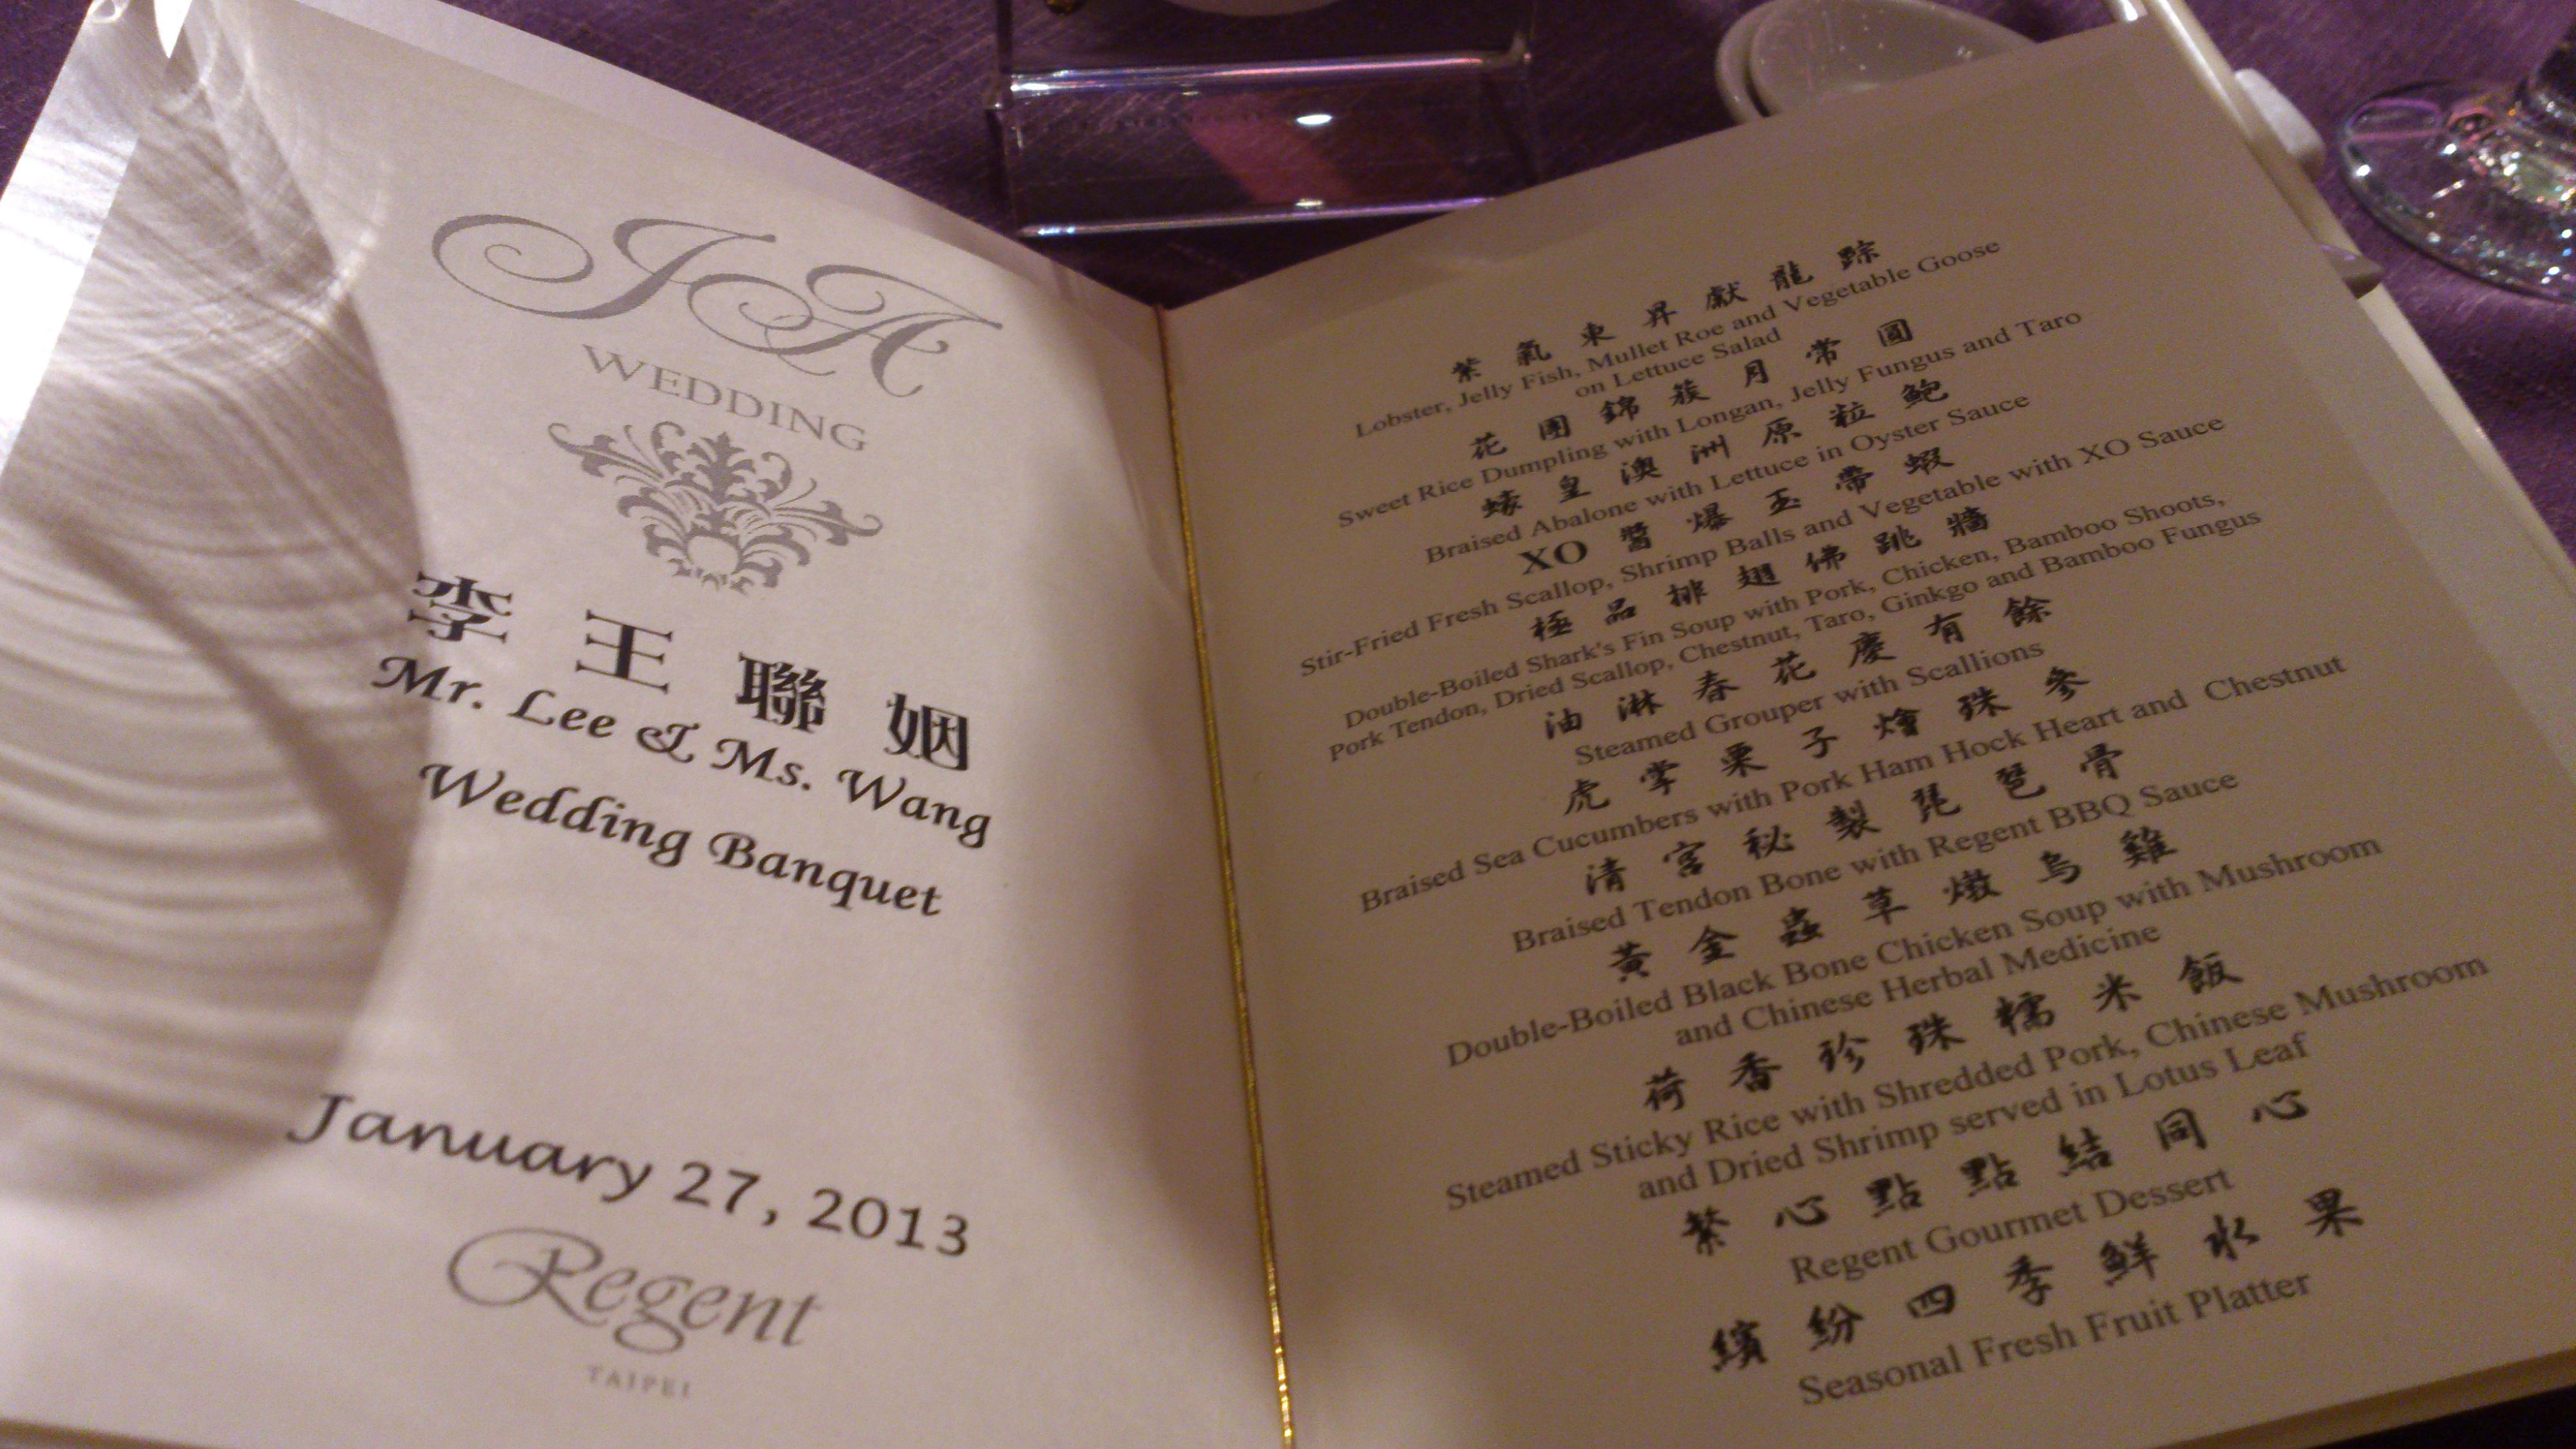 JA
WEDDING
李王聯姻
Mr. Lee & Ms. Wang
Wedding Banquet
January 27, 2013
Regent
TAIPEI
紫氣東昇獻龍踪
Lobster, Jelly Fish, Mullet Roe and Vegetable Goose
on Lettuce Salad
花團錦簇月常圓
Sweet Rice Dumpling with Longan, Jelly Fungus and Taro
蠔皇澳洲原粒鮑
Braised Abalone with Lettuce in Oyster Sauce
XO醬爆玉帶蝦
Stir-Fried Fresh Scallop, Shrimp Balls and Vegetable with XO Sauce
極品排翅佛跳牆
Double-Boiled Shark's Fin Soup with Pork, Chicken, Bamboo Shoots,
Pork Tendon, Dried Scallop, Chestnut, Taro, Ginkgo and Bamboo Fungus
油淋春花慶有餘
Steamed Grouper with Scallions
虎掌栗子燴珠參
Braised Sea Cucumbers with Pork Ham Hock Heart and Chestnut
清宮秘製琵琶骨
Braised Tendon Bone with Regent BBQ Sauce
黃金蟲草燉烏雞
Double-Boiled Black Bone Chicken Soup with Mushroom
and Chinese Herbal Medicine
荷香珍珠糯米飯
Steamed Sticky Rice with Shredded Pork, Chinese Mushroom
and Dried Shrimp served in Lotus Leaf
繫心點點結同心
Regent Gourmet Dessert
繽紛四季鮮水果
Seasonal Fresh Fruit Platter